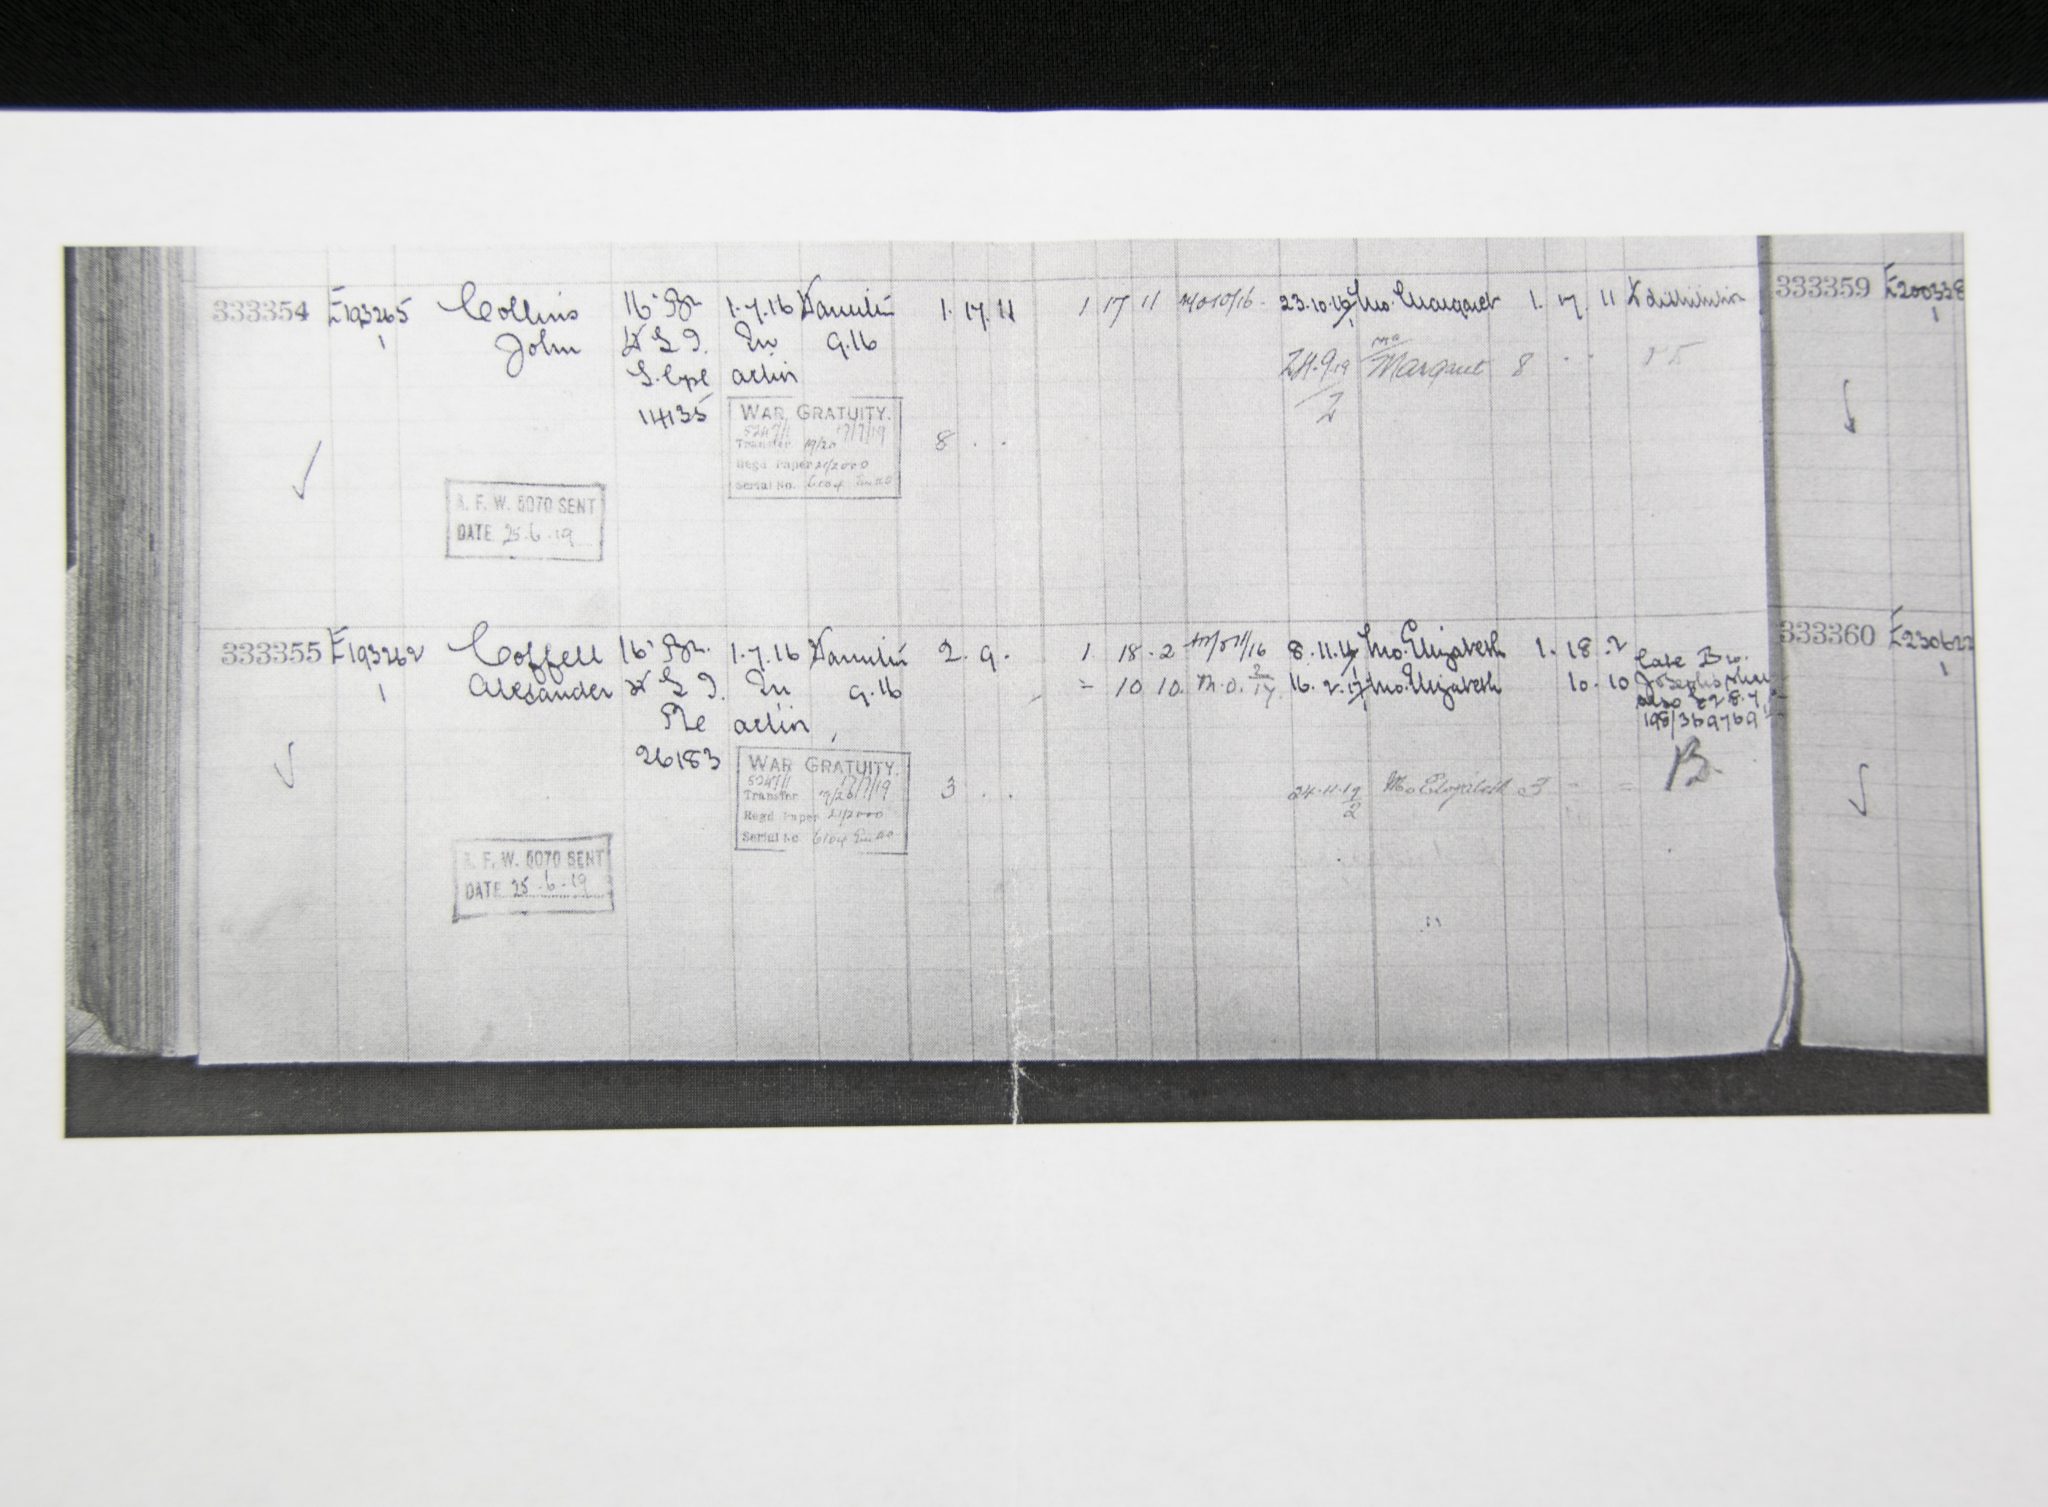 333354 E193265 Collins 16 Bn 1.7.16 9.16 1.17.11 1 17 11 23.10.16 Mo. Margaret 1. 17. 11
John In
L. Cpl action
14135
24.9.19 Margaret 8
2
WAR GRATUITY.
5247/1 17/7/19
Transfer 19/20
Regd Paper 21/2000
Serial No. 6104
8 . .
A. F. W. 5070 SENT
DATE 25.6.19
333355 E193262 Coffell 16 Bn. 1.7.16 2. 9. 1. 18. 2 8.11.16 Mo. Elizabeth 1. 18. 2
Alexander In 9.16 = 10 10. M.O. 16. 2. 17 Mo. Elizabeth 10. 10
Pte action
26183
WAR GRATUITY.
5247/1 17/7/19
Transfer
Regd Paper 21/2000
Serial No 6104
3 . .
24.11.19 Mo Elizabeth 3
2
B.
A. F. W. 5070 SENT
DATE 25.6.19
333359 E200338
333360